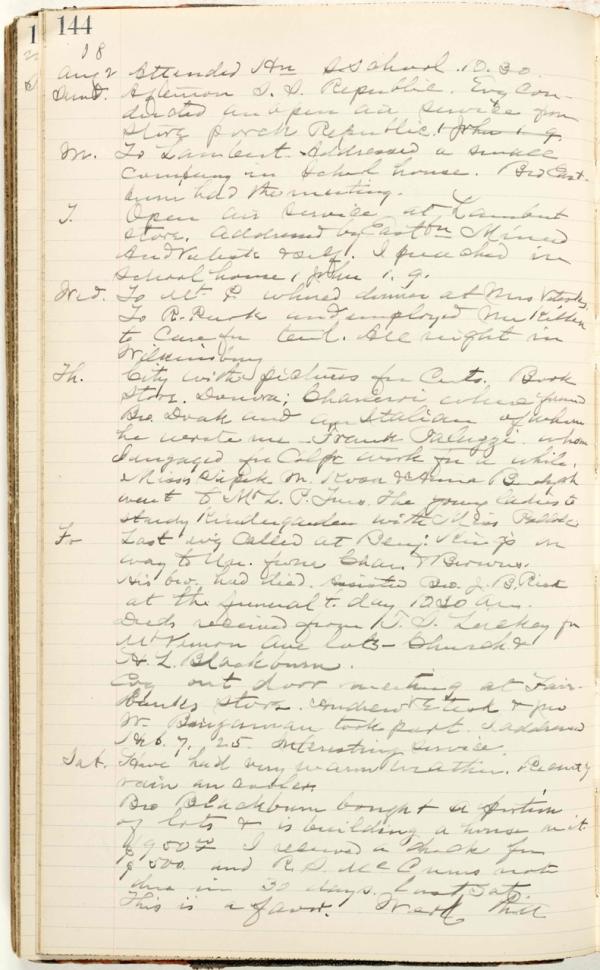 144
18
Aug 2 Attended Hm S. School. 10.30.
Sund. Afternoon S. S. Republic. Evg Con-
ducted an open air service from
store porch Republic. 1 John 1. 9.
M. To Lambert. Addressed a small
company in School house. Bro East-
burn had the meeting.
T. Open air service at Lambert
Store. Addressed by East
and self. I preached in
School house, 1 John 1. 9.
Wed. To Mt. P. where dinner at Mrs
To R. and employed Mr
to care for tent. All night in
Wilkinsburg
Th. City with pictures for Cuts. Book
Store. Donora; Charleroi, where found
Bro. Doak and an Italian of whom
he wrote me - Frank whom
I engaged for Colp. work for a while.
Misses M. Kosa & Anna
went to Mt. L. P. The young ladies to
study Kindergarden with Miss
Fr Last evg called at Benj. King's on
way to from Char. & Browns.
His bro. had died. Assisted Bro. J. B.
at the funeral to day 10.30 am.
Deeds received from for
Mt Vernon Ave lots - Church &
H. L. Blackburn.
Evg out door meeting at Fair-
banks Store. Andrew &
W. Bingaman took part. I address
Heb. 7. 25. Interesting service.
Sat. Have had very warm weather. Recently
rain and cooler.
Bro Blackburn bought a portion
of lots & is building a house on it.
$950.00 I received a check for
$500. and R. S. McCrums note
due in 30 days. Last Sat.
This is a favor. Went